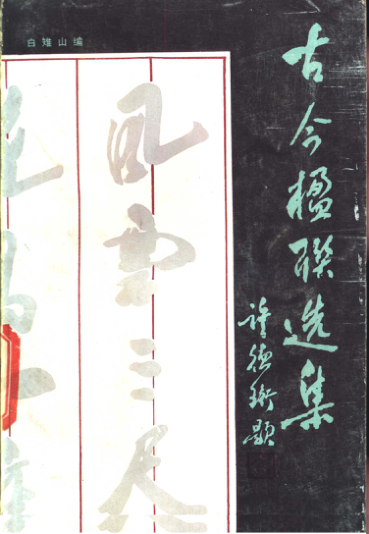 白雉山编
古今楹联选集
许德珩题
风云三尺